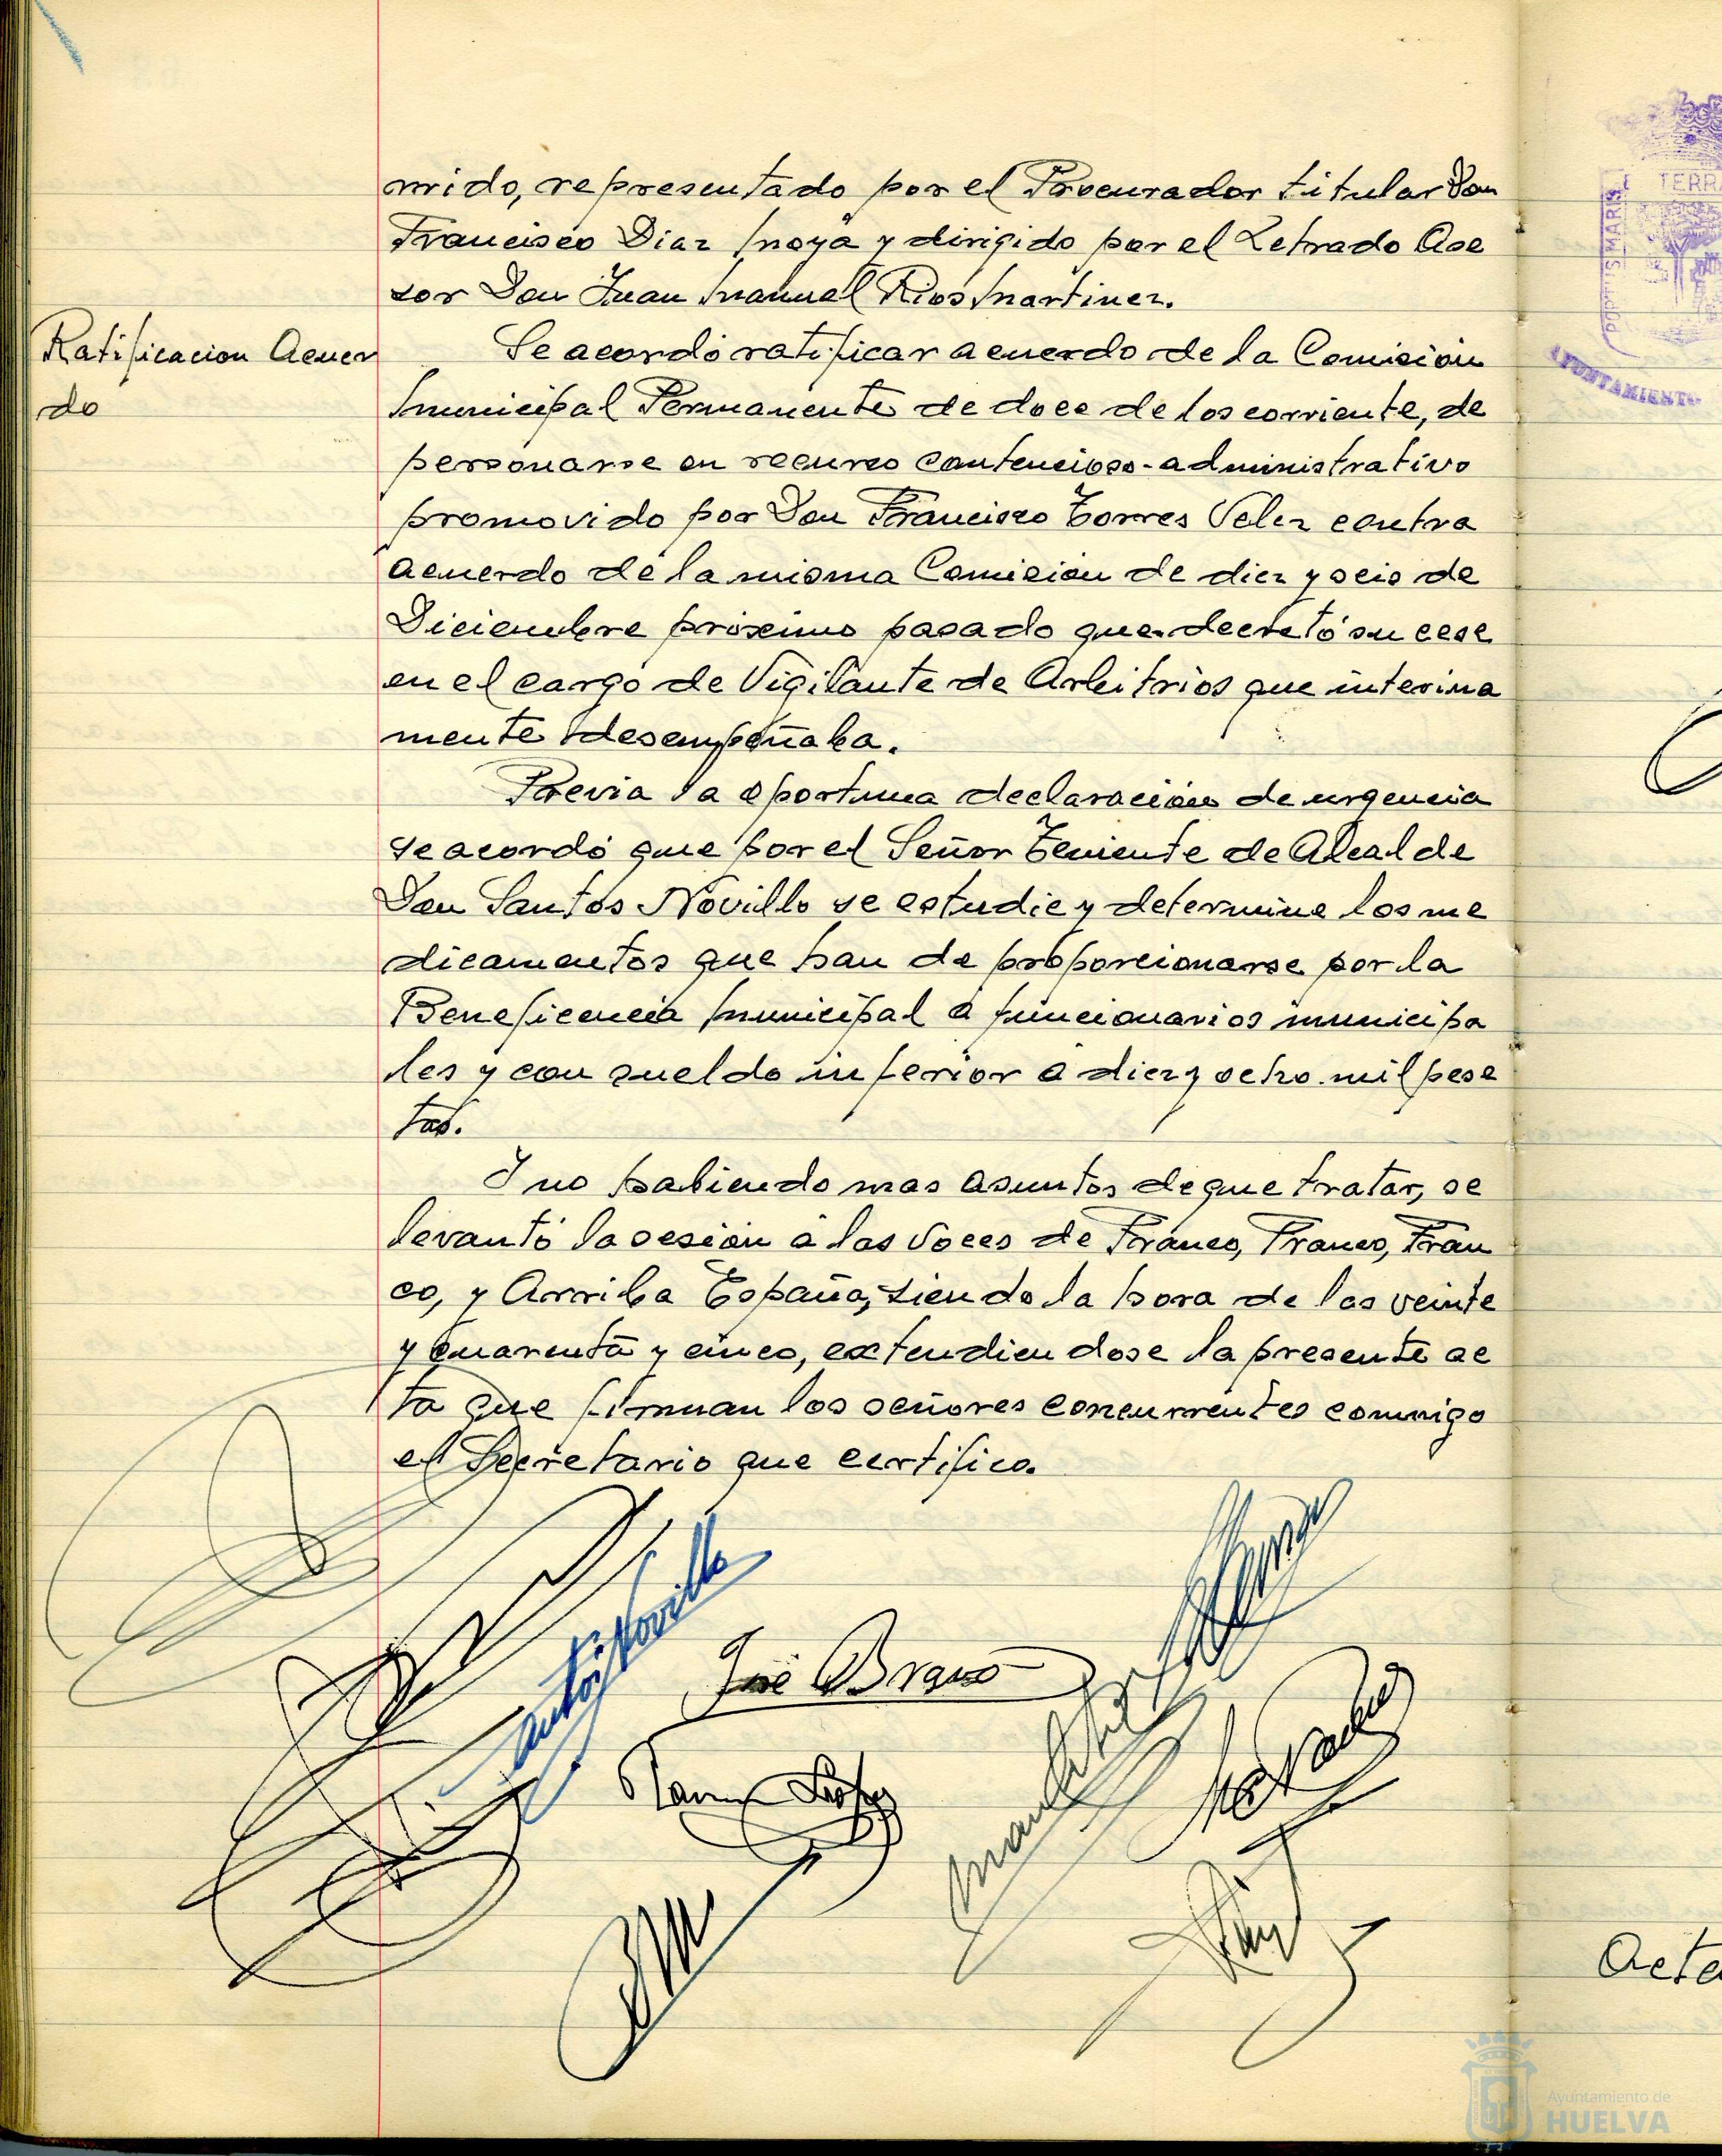 rrido, representado por el Procurador titular Don
Francisco Diaz Moya y dirigido por el Letrado Ase
sor Don Juan Manuel Rios Martinez.
Ratificacion Acuer
do
Se acordó ratificar acuerdo de la Comisión
Municipal Permanente de doce de los corriente, de
personarse en recurso contencioso-administrativo
promovido por Don Francisco Torres Velez contra
acuerdo de la misma Comision de diez y seis de
Diciembre próximo pasado que decretó su cese
en el cargo de Vigilante de Arbitrios que interina
mente desempeñaba.
Previa la oportuna declaración de urgencia
se acordó que por el Señor Teniente de Alcalde
Don Santos Novillo se estudie y determine los me
dicamentos que han de proporcionarse por la
Beneficencia Municipal a funcionarios municipa
les y con sueldo inferior a diez y ocho mil pese
tas.
Y no habiendo mas asuntos de que tratar, se
levantó la sesión a las voces de Franco, Franco, Fran
co, y Arriba España, siendo la hora de las veinte
y cuarenta y cinco, extendiendose la presente ac
ta que firman los señores concurrentes conmigo
el Secretario que certifico.
Santos Novillo
José Bravo
TERRA
PORTUS MARIS
AYUNTAMIENTO
Acta
Ayuntamiento de
HUELVA